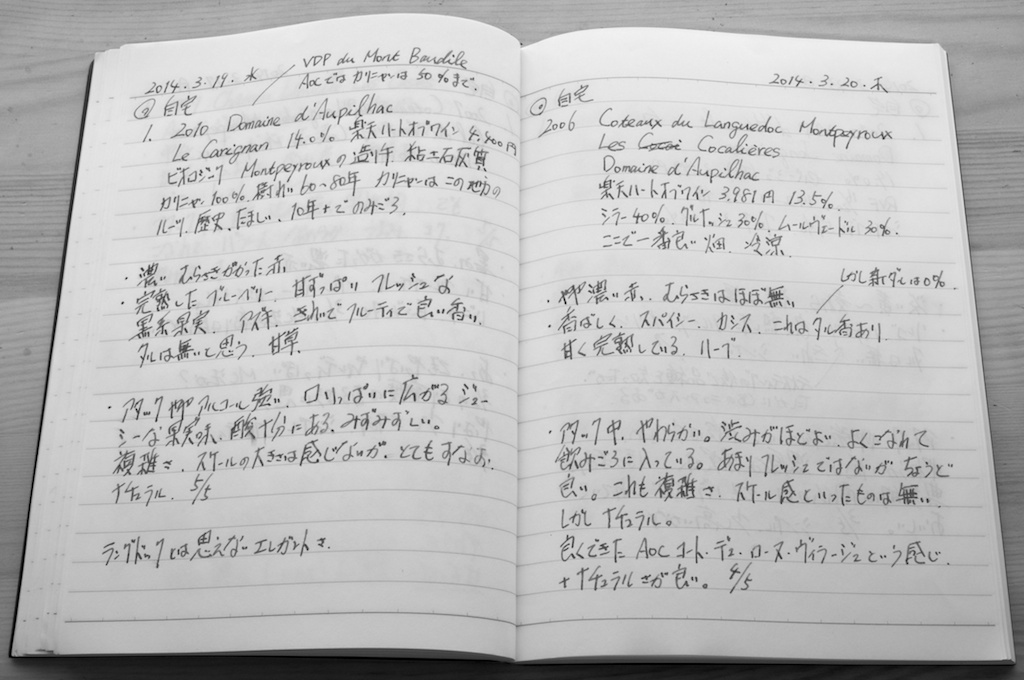 2014.3.19.水
VDP du Mont Baudile
AOCではカリニャンは50%まで.
@自宅
1. 2010 Domaine d'Aupilhac
Le Carignan 14.0% 楽天ハートオブワイン 4,400円
ビオロジック Montpeyrouxの造り手 粘土石灰質
カリニャン 100%. 樹れい 60〜80年 カリニャンはこの地方の
ルーツ、歴史、たましい、10年までのみごろ.
・濃い むらさきがかった赤
・完熟したブルーベリー、甘ずっぱい フレッシュな
黒系果実 きれいでフルーティで良い香い.
タルは無いと思う、甘草
・アタック やや アルコール強い、口いっぱいに広がるジュー
シーな果実味、酸十分にある、みずみずしい。
複雑さ、スケールの大きさは感じないが、とてもすなお.
ナチュラル、5/5
ラングドックとは思えないエレガントさ.
2014.3.20.木
@自宅
2006 Coteaux du Languedoc Montpeyroux
Les Cocalières
Domaine d'Aupilhac
楽天ハートオブワイン 3,981円 13.5%.
シラー 40%、グルナッシュ30%、ムールヴェードル 30%.
ここで一番良い畑 冷涼
しかし新ダルは0%.
・やや濃い赤、むらさきはほぼ無い
・香ばしく、スパイシー、カシス、これはタル香あり.
甘く完熟している、ハーブ.
・アタック中、やわらかい。渋みがほどよい、よくこなれて
飲みごろに入っている。あまりフレッシュではないが ちょうど
良い。これも複雑さ、スケール感といったものは無い.
しかしナチュラル。
良くできた AOC コート・デュ・ローヌ・ヴィラージュという感じ.
+ナチュラルさが良い。4/5